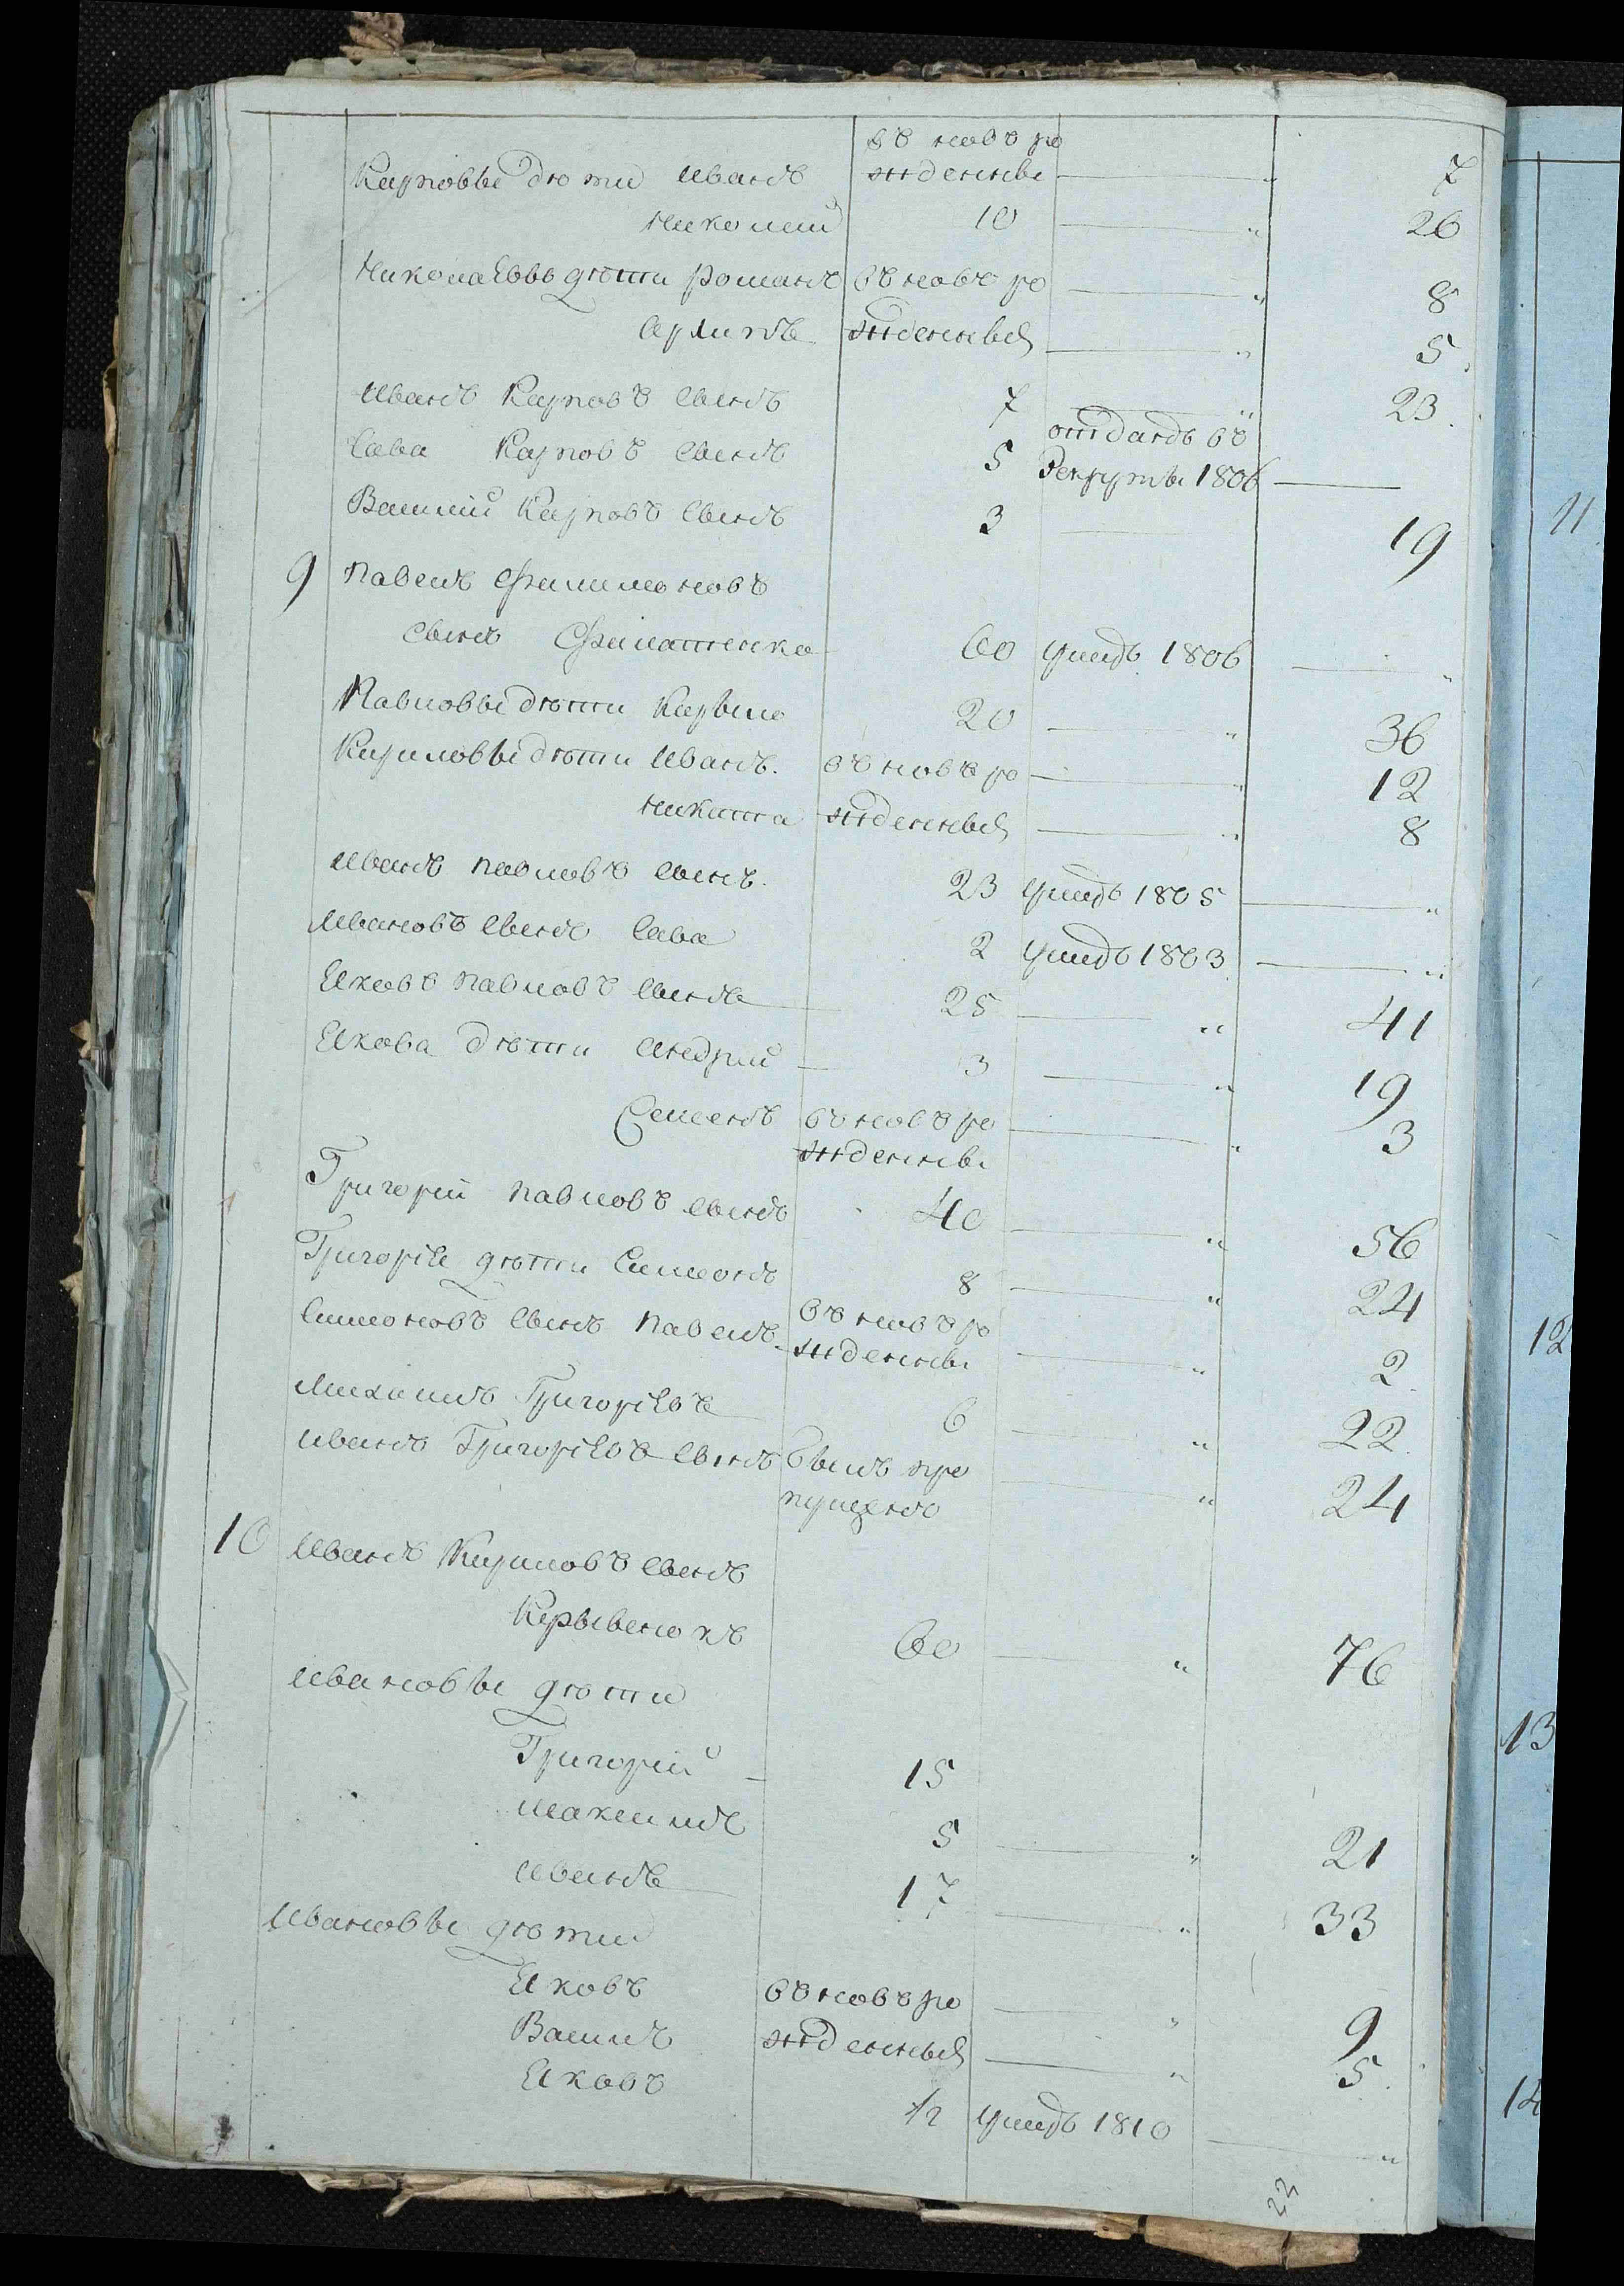 въ новъ ро
Карповы дѣти Иванъ жденны 7
Николай 10 " 26
Николаевы дѣти Романъ въ новъ ро " 8
Архипъ жденныя " 5
Иванъ Карповъ сынъ 7 " 23
Сава Карповъ сынъ 5 отданъ въ
рекруты 1806
Василий Карповъ сынъ 3 19
9 Павелъ Филимоновъ
сынъ 60 умеръ 1806 "
Павловы дѣти Кирыло 20 " 36
Кириловы дѣти Иванъ въ новъ ро " 12
Никита жденныя " 8
Иванъ Павловъ сынъ 23 умеръ 1805 "
Ивановъ сынъ Сава 2 умеръ 1803 "
Яковъ Павловъ сынъ 25 " 41
Якова дѣти Андрий 3 " 19
Семенъ въ новъ ро " 3
жденны
Григорий Павловъ сынъ 40 " 56
Григорія дѣти Симонъ 8 " 24
Симоновъ сынъ Павелъ въ новъ ро
жденны " 2
Михаилъ Григоріевъ 6 " 22
Иванъ Григоріевъ сынъ былъ про " 24
пущенъ
10 Иванъ Кириловъ сынъ
Крывенокъ 60 " 76
Ивановы дѣти
Григорий 15
Максимъ 5 " 21
Иванъ 17 " 33
Ивановы дѣти
Яковъ въ новъ ро " 9
Василь жденныя " 5
Яковъ 1/2 умеръ 1810 "
22
11
12
13
14